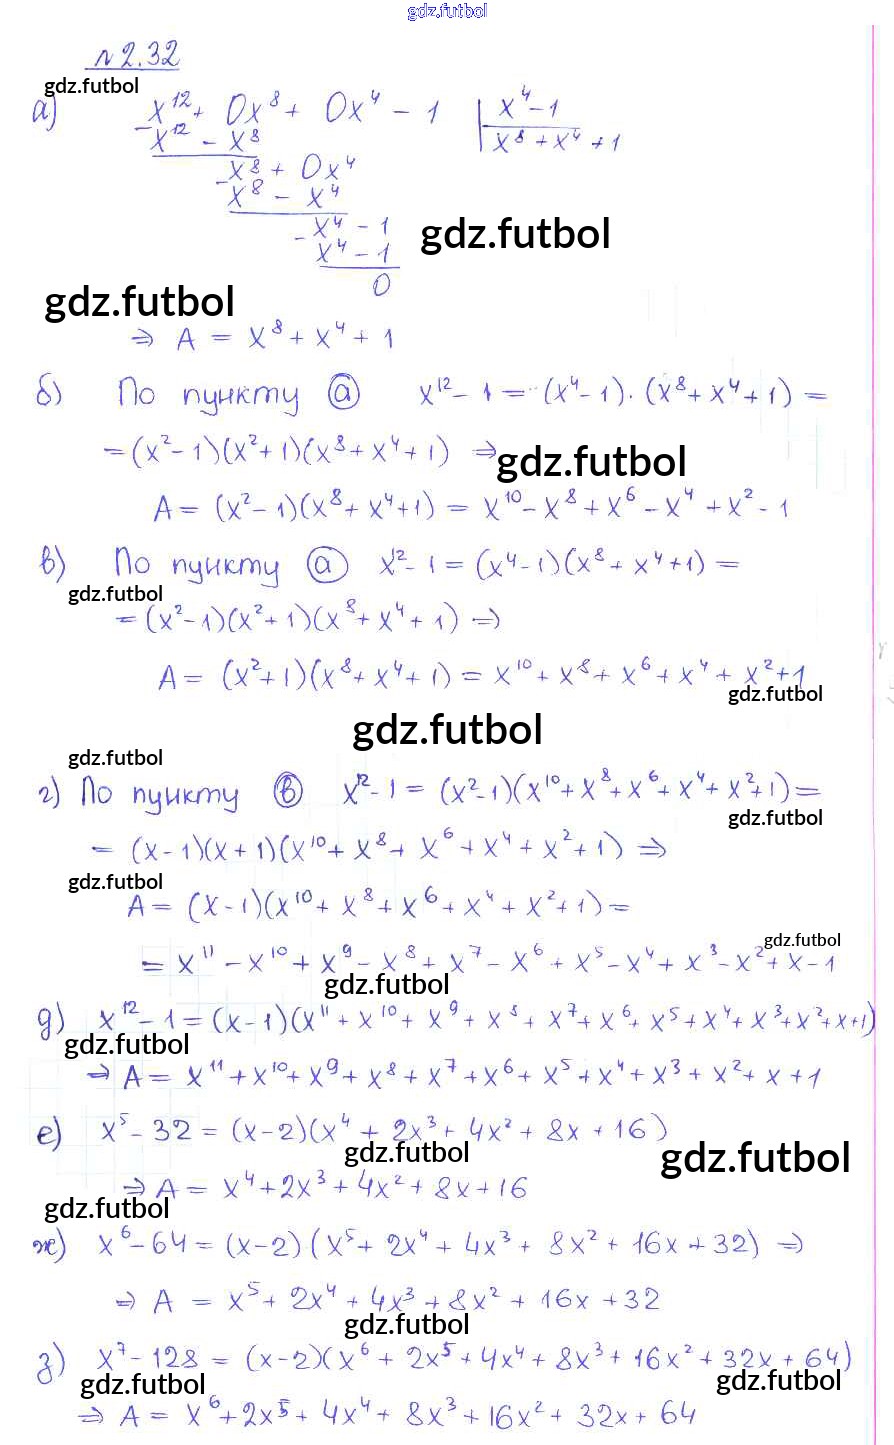 gdz.futbol
№2.32
gdz.futbol
а) x¹² + 0x⁸ + 0x⁴ - 1 | x⁴-1
- x¹² - x⁸ x⁸+x⁴+1
x⁸ + 0x⁴
- x⁸ - x⁴
x⁴ - 1
- x⁴ - 1
gdz.futbol
0
gdz.futbol
⇒ A = x⁸ + x⁴ + 1
б) По пункту а x¹² - 1 = (x⁴-1)·(x⁸+x⁴+1) =
= (x²-1)(x²+1)(x⁸+x⁴+1) ⇒
gdz.futbol
A = (x²-1)(x⁸+x⁴+1) = x¹⁰ - x⁸ + x⁶ - x⁴ + x² - 1
в) По пункту а x¹² - 1 = (x⁴-1)(x⁸+x⁴+1) =
gdz.futbol
= (x²-1)(x²+1)(x⁸+x⁴+1) ⇒
A = (x²+1)(x⁸+x⁴+1) = x¹⁰ + x⁸ + x⁶ + x⁴ + x² + 1
gdz.futbol
gdz.futbol
gdz.futbol
г) По пункту в x¹² - 1 = (x²-1)(x¹⁰+x⁸+x⁶+x⁴+x²+1) =
gdz.futbol
= (x-1)(x+1)(x¹⁰+x⁸+x⁶+x⁴+x²+1) ⇒
gdz.futbol
A = (x-1)(x¹⁰+x⁸+x⁶+x⁴+x²+1) =
gdz.futbol
= x¹¹ - x¹⁰ + x⁹ - x⁸ + x⁷ - x⁶ + x⁵ - x⁴ + x³ - x² + x - 1
gdz.futbol
д) x¹² - 1 = (x-1)(x¹¹+x¹⁰+x⁹+x⁸+x⁷+x⁶+x⁵+x⁴+x³+x²+x+1)
gdz.futbol
⇒ A = x¹¹+x¹⁰+x⁹+x⁸+x⁷+x⁶+x⁵+x⁴+x³+x²+x+1
е) x⁵ - 32 = (x-2)(x⁴+2x³+4x²+8x+16)
gdz.futbol
gdz.futbol
⇒ A = x⁴+2x³+4x²+8x+16
gdz.futbol
ж) x⁶ - 64 = (x-2)(x⁵+2x⁴+4x³+8x²+16x+32) ⇒
⇒ A = x⁵+2x⁴+4x³+8x²+16x+32
gdz.futbol
з) x⁷ - 128 = (x-2)(x⁶+2x⁵+4x⁴+8x³+16x²+32x+64)
gdz.futbol
gdz.futbol
⇒ A = x⁶+2x⁵+4x⁴+8x³+16x²+32x+64